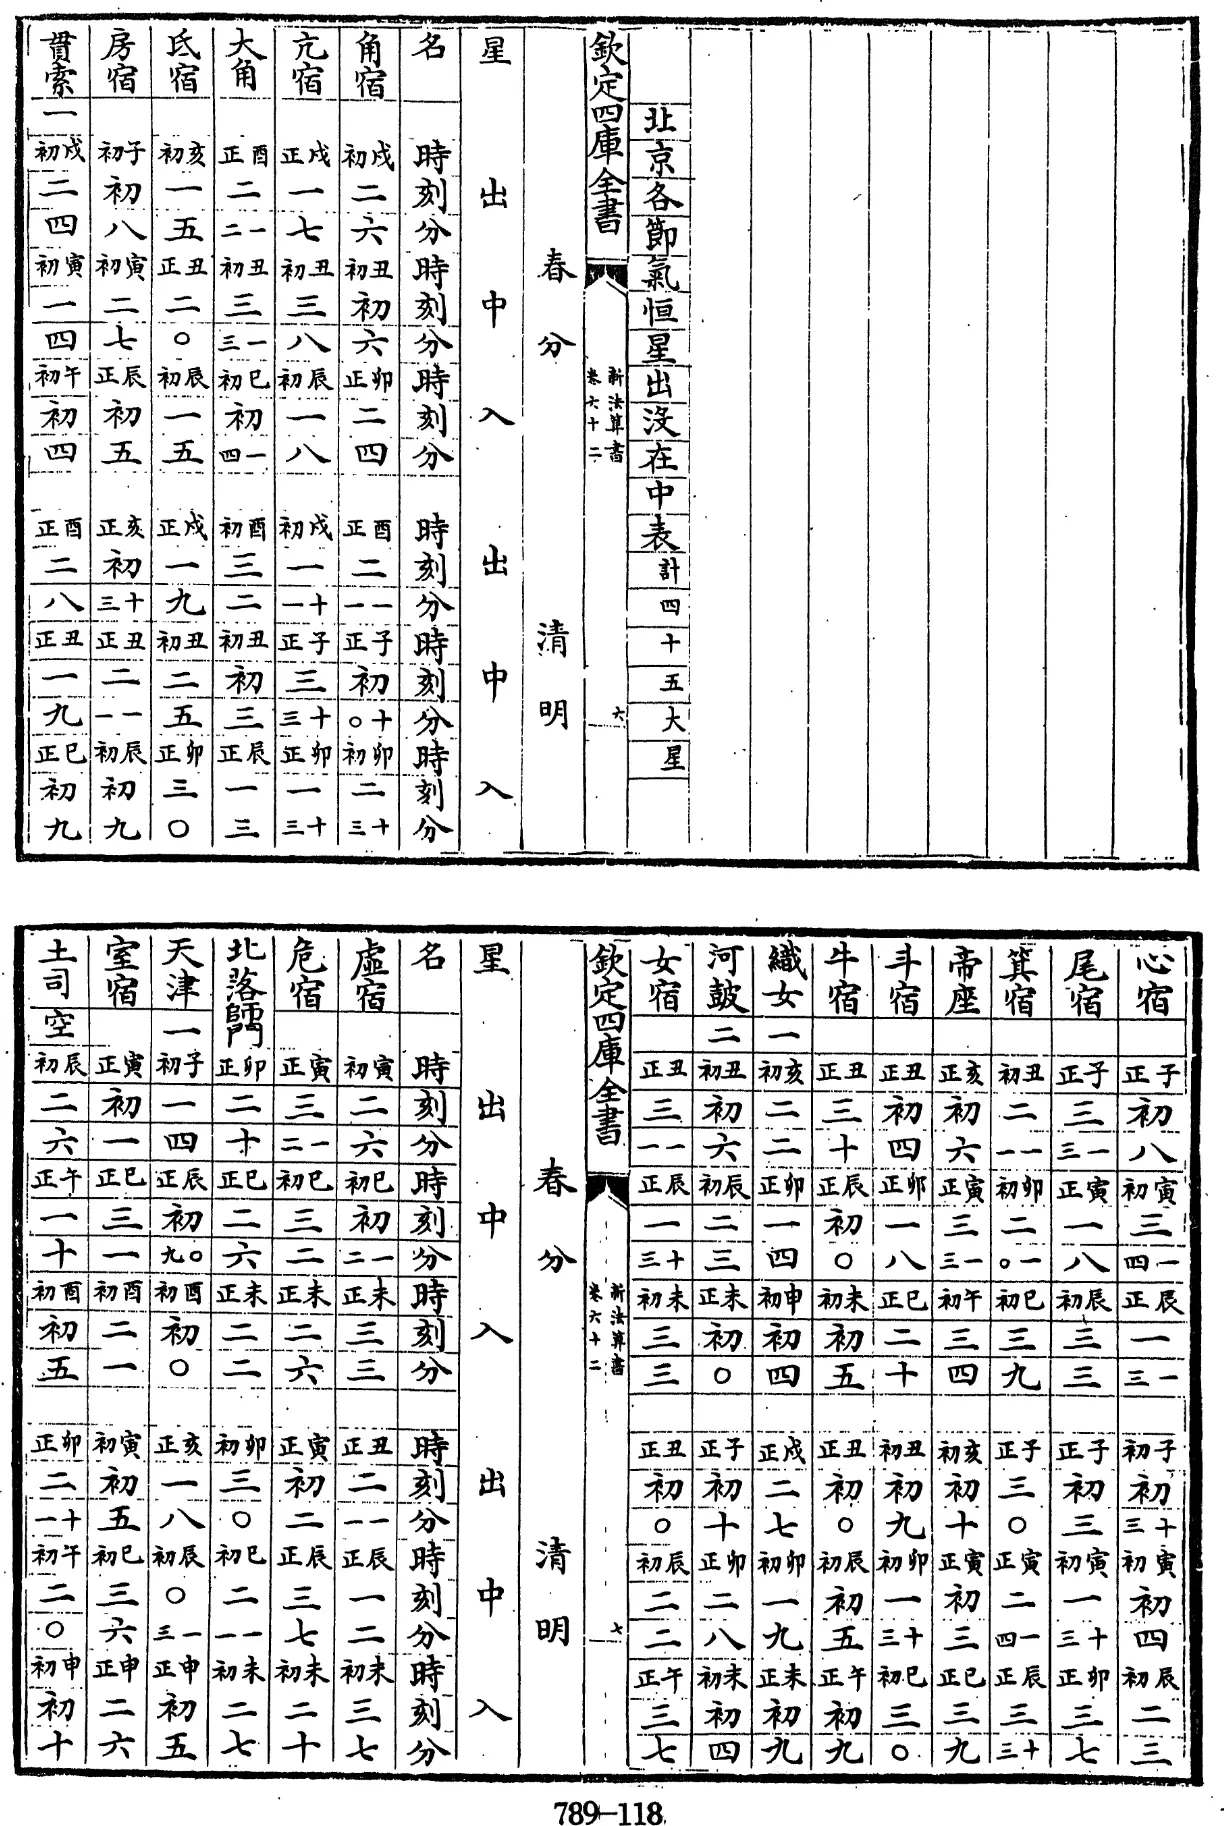 北京各節氣恒星出沒在中表計四十五大星
欽定四庫全書
新法算書
卷六十二
六
春分 清明
星 出 中 入 出 中 入
名 時刻分時刻分時刻分 時刻分時刻分時刻分
角宿 戌初二六丑初初六卯正二四 酉正二一一子正初十〇卯初二十三
亢宿 戌正一七丑初三八辰初一八 戌初一十一子正三十三卯正一十三
大角 酉正二一二丑初三一三巳初初一四 酉初三二丑初初三辰正一三
氐宿 亥初一五丑正二〇辰初一五 戌正一九丑初二五卯正三〇
房宿 子初初八寅初二七辰正初五 亥正初十三丑正二一一辰初初九
貫索一 戌初二四寅初一四午初初四 酉正二八丑正一九巳正初九
心宿 子正初八寅初三一四辰正一一三 子初初十三寅初初四辰初二三
尾宿 子正三一三寅正一八辰初三三 子正初三寅初一十三卯正三七
箕宿 丑初二一一卯初二一〇巳初三九 子正三〇寅正二一四辰正三十三
帝座 亥正初六寅正三一三午初三四 亥初初十寅正初三巳正三九
斗宿 丑正初四卯正一八巳正二十 丑初初九卯初一十三巳初三〇
牛宿 丑正三十辰正初〇未初初五 丑正初〇辰初初五午正初九
織女一 亥初二二卯正一四申初初四 戌正二七卯初一九未正初九
河鼓二 丑初初六辰初二三未正初〇 子正初十卯正二八未初初四
女宿 丑正三一一辰正一十三未初三三 丑正初〇辰初二二午正三七
欽定四庫全書
新法算書
卷六十二
七
春分 清明
星 出 中 入 出 中 入
名 時刻分時刻分時刻分 時刻分時刻分時刻分
虛宿 寅初二六巳初初一二未正三三 丑正二一一辰正一二未初三七
危宿 寅正三一二巳初三二未正二六 寅正初二辰正三七未初二十
北落師門 卯正二十巳正二六未正二二 卯初三〇巳初二一一未初二七
天津一 子初一四辰正初〇九酉初初〇 亥正一八辰初〇一三申正初五
室宿 寅正初一巳正三一酉初二一 寅初初五巳初三六申正二六
土司空 辰初二六午正一十酉初初五 卯正二十一午初二〇申初初十
789-118